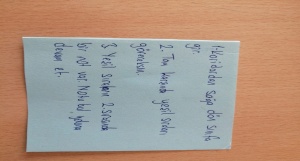 1-Koridordan sağa dön sınıfa
gir
2. Tam karşında yeşil sıraları
göreceksin.
3. Yeşil sıraların 2. sırasında
bir not var. Notu bul yoluna
devam et.